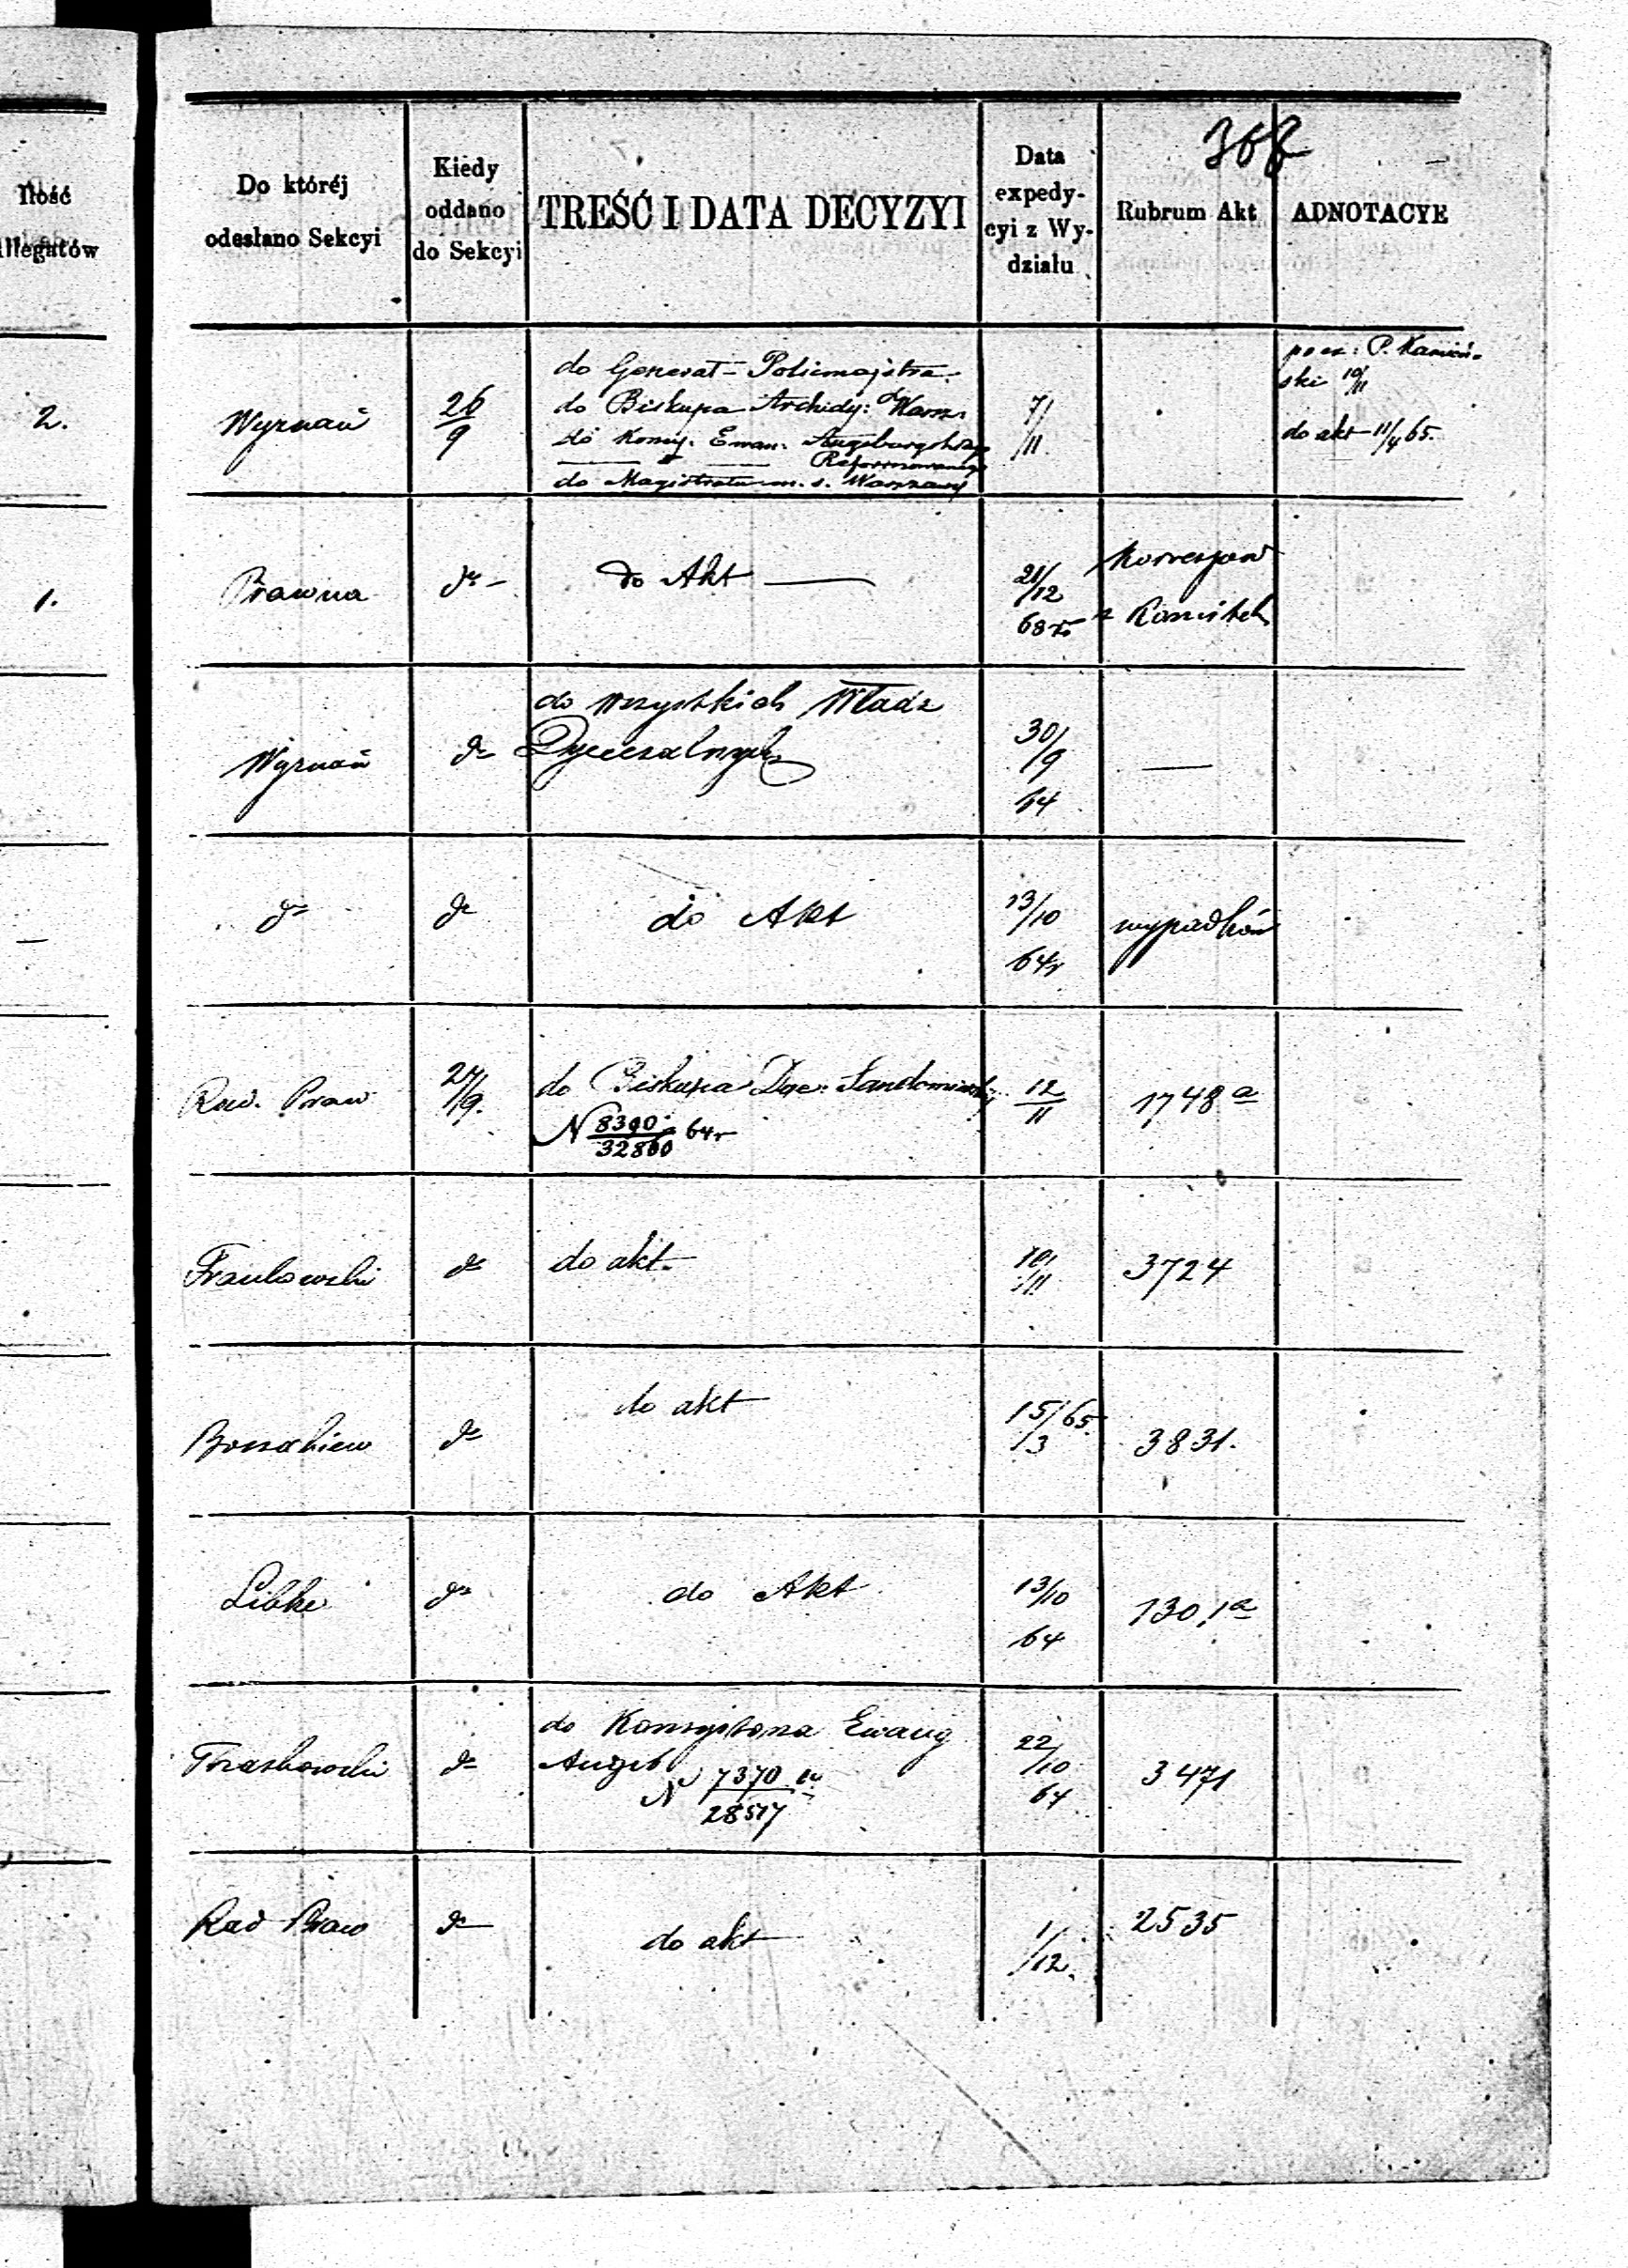 Ilość
allegatów
2.
1.
—
368
Do któréj
odesłano Sekcyi
Kiedy
oddano
do Sekcyi
TREŚĆ I DATA DECYZYI
Data
expedy-
cyi z Wy-
działu
Rubrum Akt
ADNOTACYE
Wyznań
26/9
do Generał-Policmajstra
do Biskupa Archidy: Warsz.
do Konsy. Ewan. Augsburgskiego
— " — Reformowanego
do Magistratu m. s. Warszawy
7/11
P. Kamień-
ski 10/11
do akt 11/4 65.
Prawna
do –
do Akt —
21/12
68 r.
Korrespon
z Rossijsk
Wyznań
do
do wszystkich Władz
Dyecezalnych
30/9
64
—
do
do
do Akt
13/10
64 r
wypadków
Rad. Praw
27/9.
do Biskupa Dye: Sandomierskiej
N 8390/32860 64 r
12/11
1748 a
do
do akt.
10/11
3724
do
do akt
15/3 65.
3831.
Libke
do
do Akt
13/10
64
1301 a
do
do Konsystorza Ewang
Augsb
N 7370/28517
22/10
64
3471
Rad Praw
do
do akt
1/12.
2535